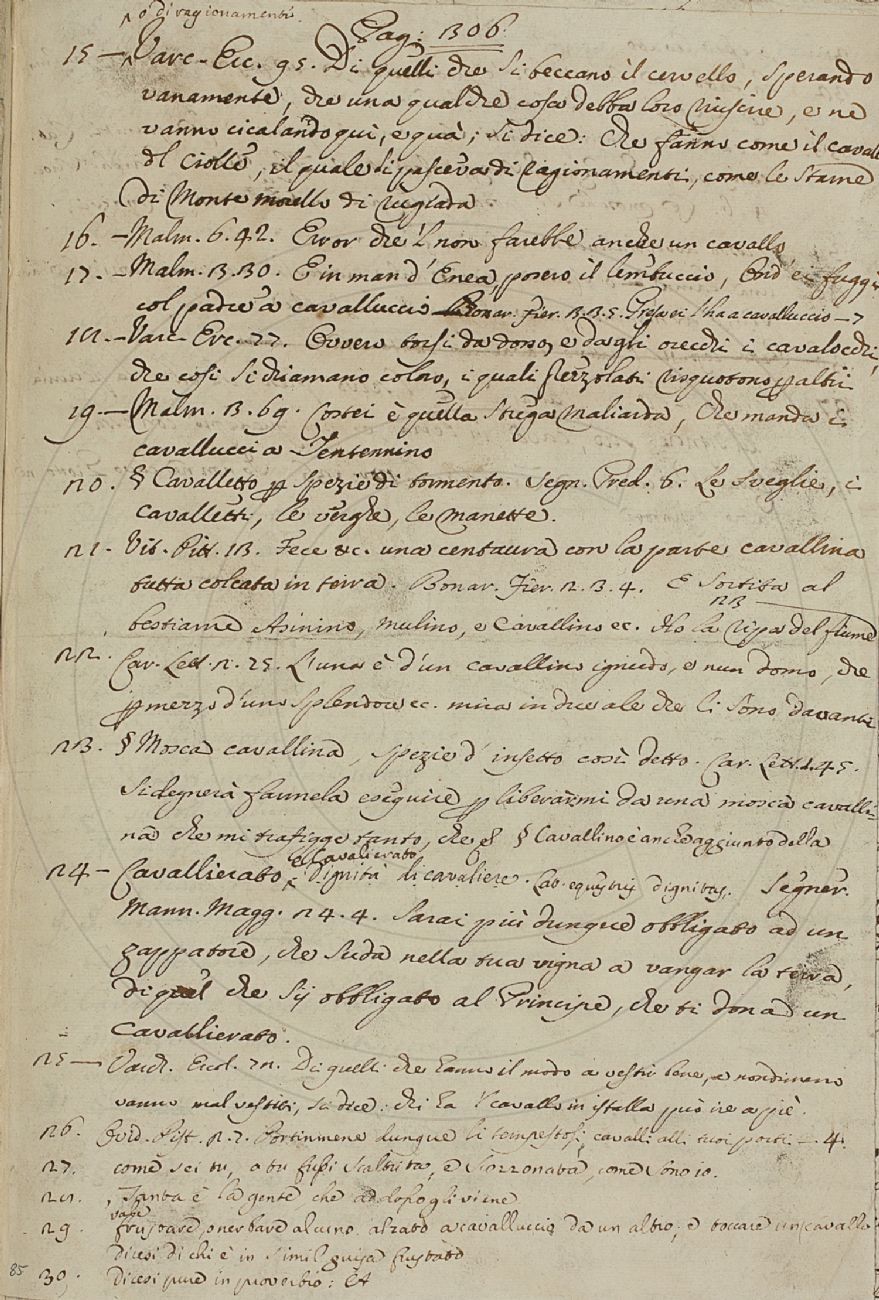 ^ o di ragionamenti.
Pag: 306.
15 — ^Varc. Erc. 95. Di quelli che si beccano il cervello, sperando
vanamente, che una qualche cosa debba loro riuscire, e ne
vanno cicalando qui, e quà; si dice: Che fanno come il cavall
del Ciolle, il quale si pasceva di ragionamenti, come le starne
di Monte morello di rugiada
16. — Malm. 6. 42. Error che 'l non farebbe anche un cavallo
17. — Malm. 3. 30. E in man d' Enea, posero il lembuccio, Ond' ei fuggì
col padre a cavalluccio Bonar. Fier. 3. 3. 5. Presa ei l'ha a cavalluccio — 7
18. — Varc. Erc. 77. Ovvero torsi da dosso, e dagli orecchi i cavalocchi,
che così si chiamano coloro, i quali prezzolati risquotono p altri
19. — Malm. 3. 69. Costei è quella strega maliarda, Che manda i
cavallucci a Tentennino
20. § Cavalletto p spezie di tormento. Segn. Pred. 6. Le sveglie, i
cavalletti, le verghe, le manette.
21. Vit. Pitt. 13. Fece &c. una centaura con la parte cavallina
tutta colcata in terra. Bonar. Fier. 2. 3. 4. E sortita al
23
bestiame Asinino, mulino, e cavallino ec. la ripa del fiume
22. Car. Lett. 2. 25. L'una è d'un cavallino ignudo, e non domo, che
p mezzo d'uno splendore ec. mira in due ale che li sono davanti
23. § Mosca cavallina, spezie d' insetto così detto. Car. Lett. 1. 45.
Si degnerà farmela eseguire p liberarmi da una mosca cavalli=
na che mi trafigge tanto, che § Cavallino è anche aggiunto della
24 — Cavallierato ^ e Cavalierato dignità di cavaliere. Lat. equestris dignitas. Segner.
Mann. Magg. 24. 4. Sarai più dunque obbligato ad un
zappatore, che suda nella tua vigna a vangar la terra,
di quel che sij obbligato al Principe, che ti dona un
Cavallierato.
25 — Varch. Ercol. 72. Di quelli che hanno il modo a vestir bene, e nondimeno
vanno mal vestiti, si dice: chi ha 'l cavallo in istalla può ire a piè.
26. Ovid. Pist. 2. 7. dunque li tempestosi cavalli alli tuoi porti — 4.
27. come sei tu, o tu fussi scaltrita, e scozzonata, come sono io.
28. Tanta è la gente, che addosso gli viene
29. vale
frustare, o nerbare alcuno alzato a cavalluccio da un altro; e toccare un cavallo
dicesi di chi è in simil guisa frustato
30. dicesi pure in proverbio: Et
85